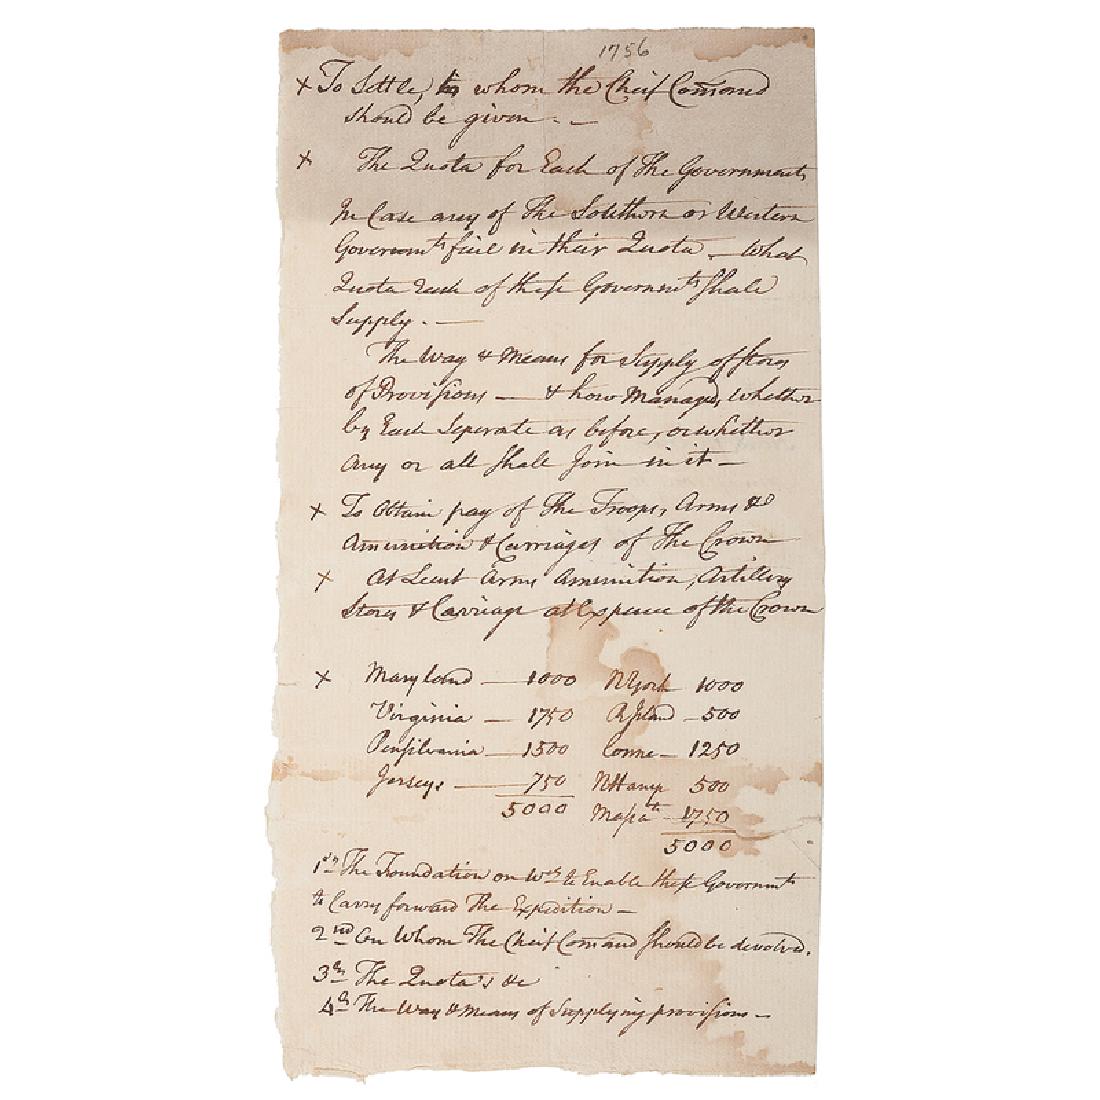 1756
x To Settle, to whom the Cheif Command
should be given. —
x The Quota for Each of The Governments
In Case any of The Southern or Western
Governmts fail in their Quota — What
Quota Each of these Governmts Shall
Supply. —
The Way & Means for Supply of Stores
of Provisions — & how Managed, Whether
by Each Seperate as before, or whether
Any or all Shall Join in it —
x To Obtain pay of The Troops, Arms &
Amunition & Carriages of The Crown
x At Least Arms Amunition, Artillery
Stores & Carriage at Expence of the Crown
x Maryland — 1000 NYork 1000
Virginia — 1750 RIsland — 500
Pensilvania — 1500 Conne — 1250
Jerseys — 750 NHamp 500
5000 Massa — 1750
5000
1st The Foundation on Wch to Enable these Governmts
to Carry forward The Expedition —
2nd On Whom The Cheif Comand should be devolved.
3d The Quota's &c
4th The Way & Means of Supplying provisions —